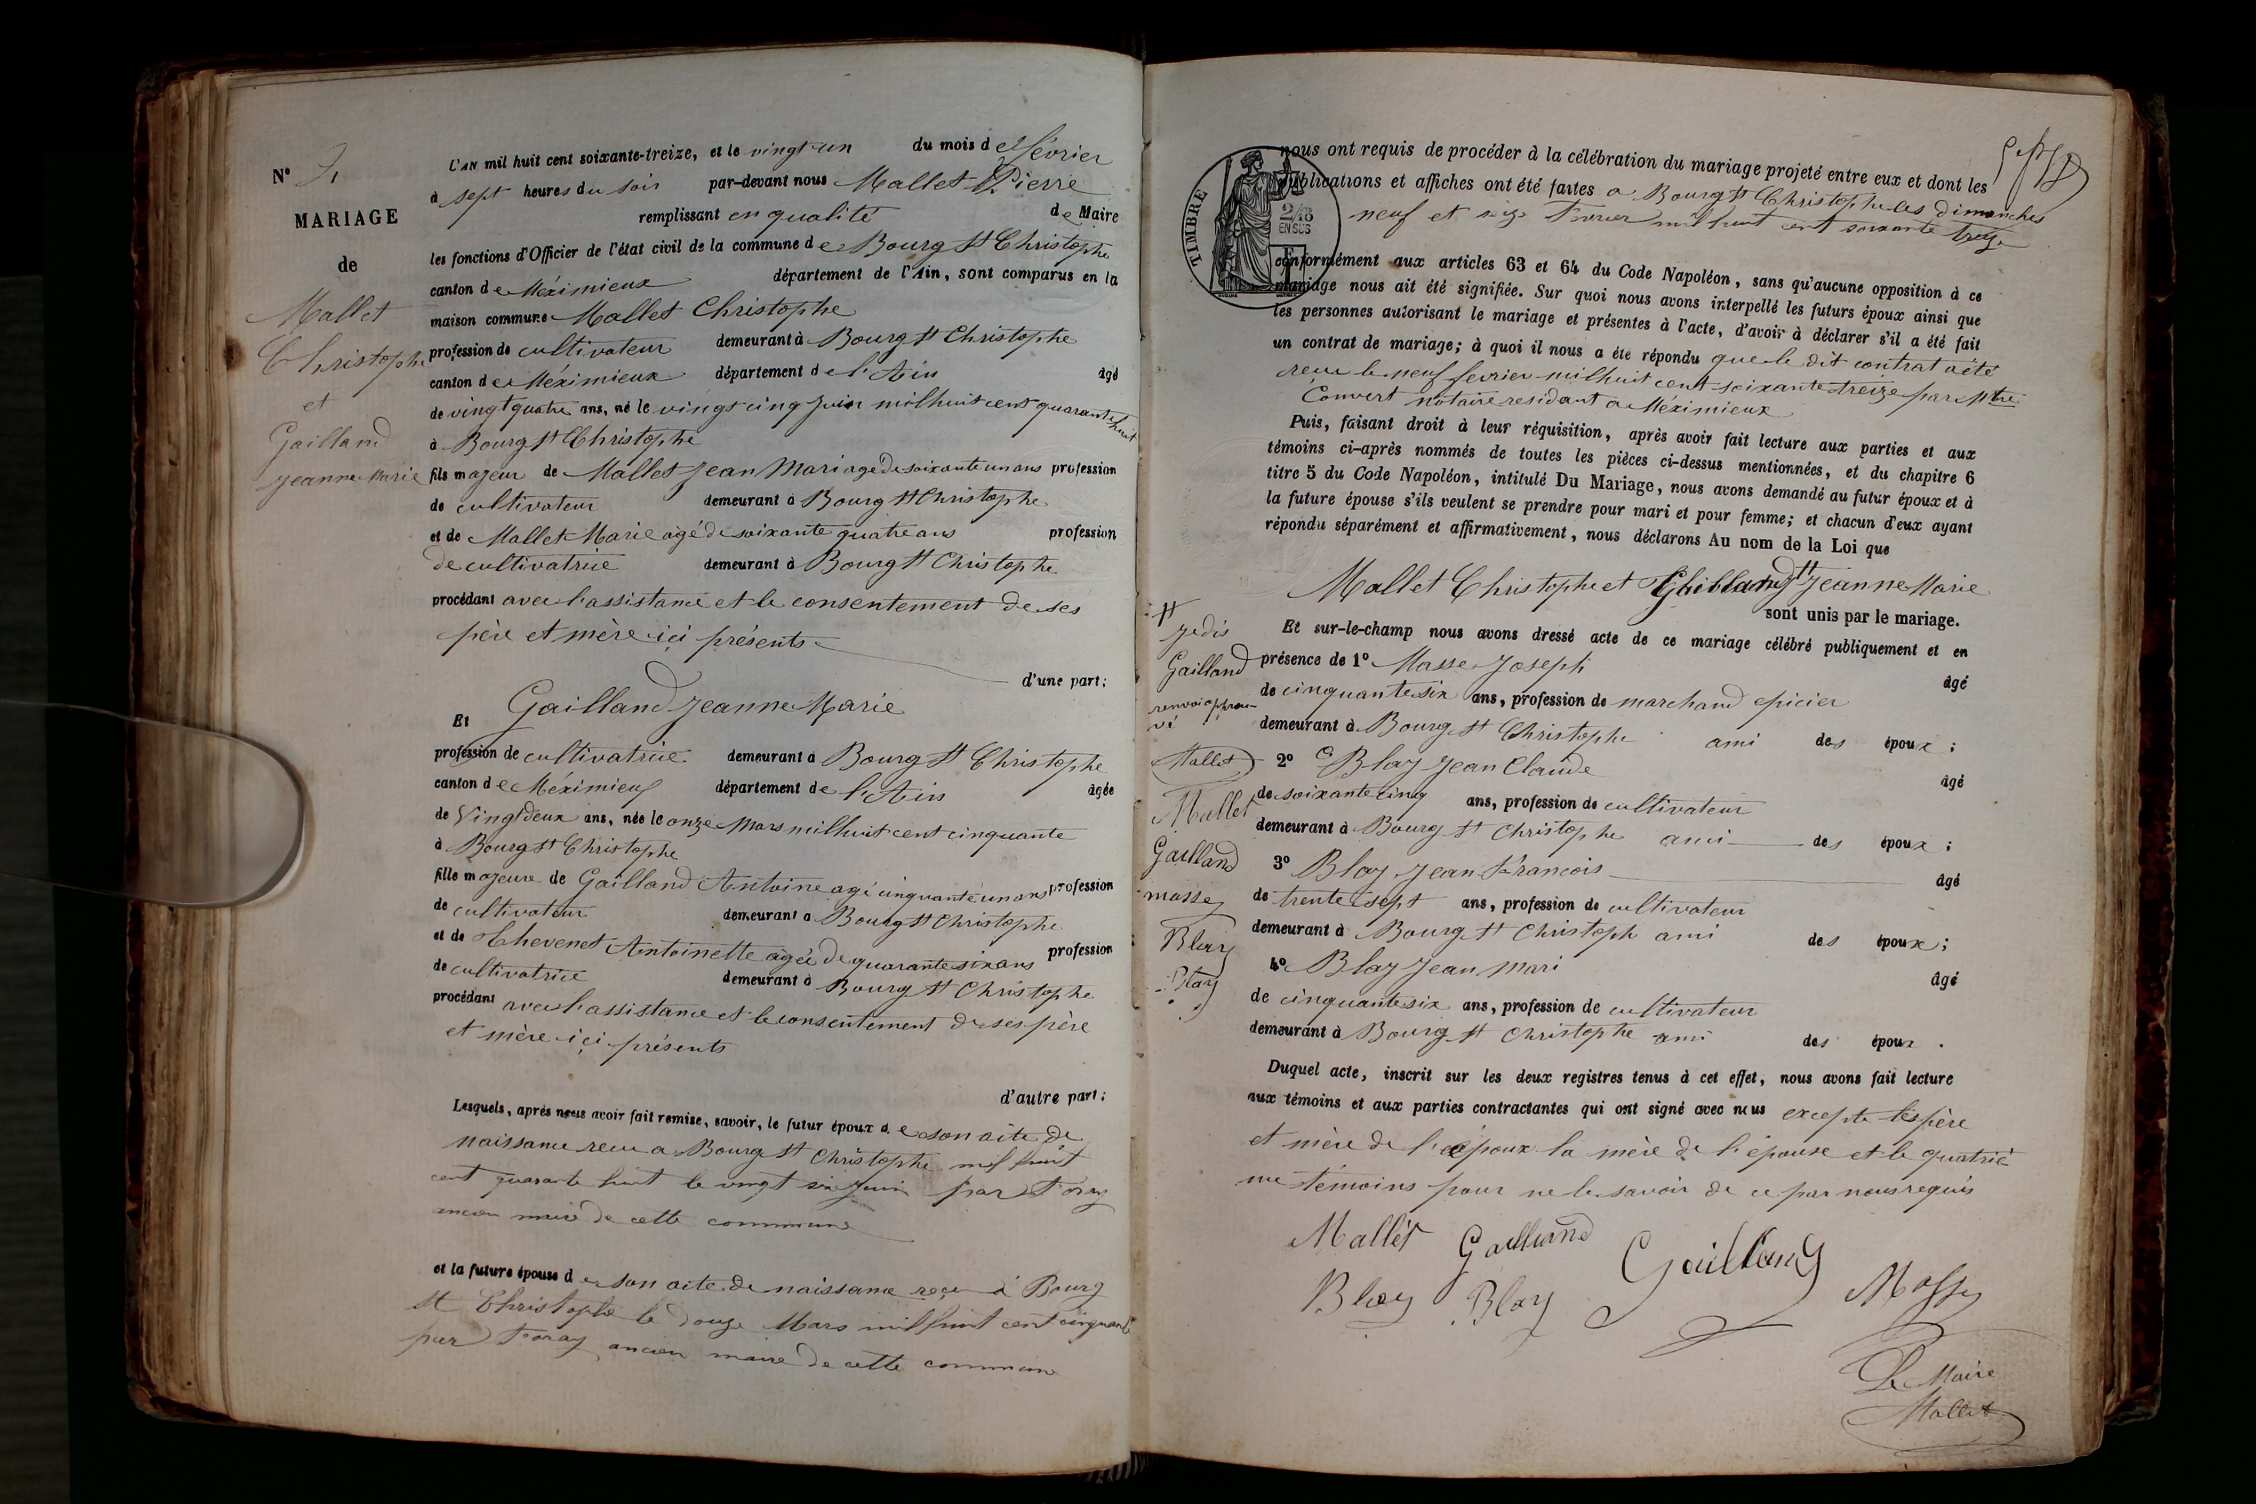 N° 2,
MARIAGE
de
Mallet
Christophe
et
Gailland
Jeanne Marie
L'AN mil huit cent soixante-treize, et le vingt un du mois de février
à sept heures du soir par-devant nous Mallet Pierre
remplissant en qualité de Maire
les fonctions d'Officier de l'état civil de la commune de Bourg St Christophe
canton de Méximieux département de l'Ain, sont comparus en la
maison commune Mallet Christophe
profession de cultivateur demeurant à Bourg St Christophe
canton de Méximieux département de l'Ain âgé
de vingt quatre ans, né le vingt cinq Juin mil huit cent quarante huit
à Bourg St Christophe
fils majeur de Mallet Jean Mari agé de soixante un ans profession
de cultivateur demeurant à Bourg St Christophe
et de Mallet Marie agé de soixante quatre ans profession
de cultivatrice demeurant à Bourg St Christophe
procédant avec l'assistance et le consentement de ses
père et mère ici présents
d'une part;
Et Gailland Jeanne Marie
profession de cultivatrice demeurant à Bourg St Christophe
canton de Méximieux département de l'Ain âgée
de Vingt deux ans, née le onze Mars mil huit cent cinquante
à Bourg St Christophe
fille majeure de Gailland Antoine agé cinquante un ans profession
de cultivateur demeurant à Bourg St Christophe
et de Thevenet Antoinette agée de quarante six ans profession
de cultivatrice demeurant à Bourg St Christophe
procédant avec l'assistance et le consentement de ses père
et mère ici présents
d'autre part;
Lesquels, après nous avoir fait remise, savoir, le futur époux de son acte de
naissance recu a Bourg St Christophe mil huit
cent quarante huit le vingt six Juin par Foray
ancien maire de cette commune
et la future épouse de son acte de naissance reçu à Bourg
St Christophe le douze Mars mil huit cent cinquante
par Foray ancien maire de cette commune
TIMBRE
2/10
EN SUS
nous ont requis de procéder à la célébration du mariage projeté entre eux et dont les
publications et affiches ont été faites a Bourg St Christophe les dimanches
neuf et seize Février mil huit cent soixante treize
conformément aux articles 63 et 64 du Code Napoléon, sans qu'aucune opposition à ce
mariage nous ait été signifiée. Sur quoi nous avons interpellé les futurs époux ainsi que
les personnes autorisant le mariage et présentes à l'acte, d'avoir à déclarer s'il a été fait
un contrat de mariage; à quoi il nous a été répondu que le dit contrat a été
recu le neuf fevrier mil huit cent soixante treize par Mtre
Convert notaire residant a Méximieux
Puis, faisant droit à leur réquisition, après avoir fait lecture aux parties et aux
témoins ci-après nommés de toutes les pièces ci-dessus mentionnées, et du chapitre 6
titre 5 du Code Napoléon, intitulé Du Mariage, nous avons demandé au futur époux et à
la future épouse s'ils veulent se prendre pour mari et pour femme; et chacun d'eux ayant
répondu séparément et affirmativement, nous déclarons Au nom de la Loi que
Mallet Christophe et Gailland Jeanne Marie
sont unis par le mariage.
Et sur-le-champ nous avons dressé acte de ce mariage célébré publiquement et en
présence de 1° Masse Joseph âgé
de cinquante six ans, profession de marchand epicier
demeurant à Bourg St Christophe ami des époux;
2° Blay Jean Claude âgé
de soixante cinq ans, profession de cultivateur
demeurant à Bourg St Christophe ami des époux;
3° Blay Jean Francois âgé
de trente sept ans, profession de cultivateur
demeurant à Bourg St Christoph ami des époux;
4° Blay Jean Mari âgé
de cinquante six ans, profession de cultivateur
demeurant à Bourg St Christophe ami des époux.
Duquel acte, inscrit sur les deux registres tenus à cet effet, nous avons fait lecture
aux témoins et aux parties contractantes qui ont signé avec nous excepte les père
et mère de l'époux la mère de l'épouse et le quatriè
me témoins pour ne le savoir de ce par nous requis
Je dis
Gailland
renvoi aprou
vé
Mallet
Mallet
Gailland
masse
Blay
Blay
Mallet Gailland Gailland
Blay Blay Masse
Le Maire
Mallet